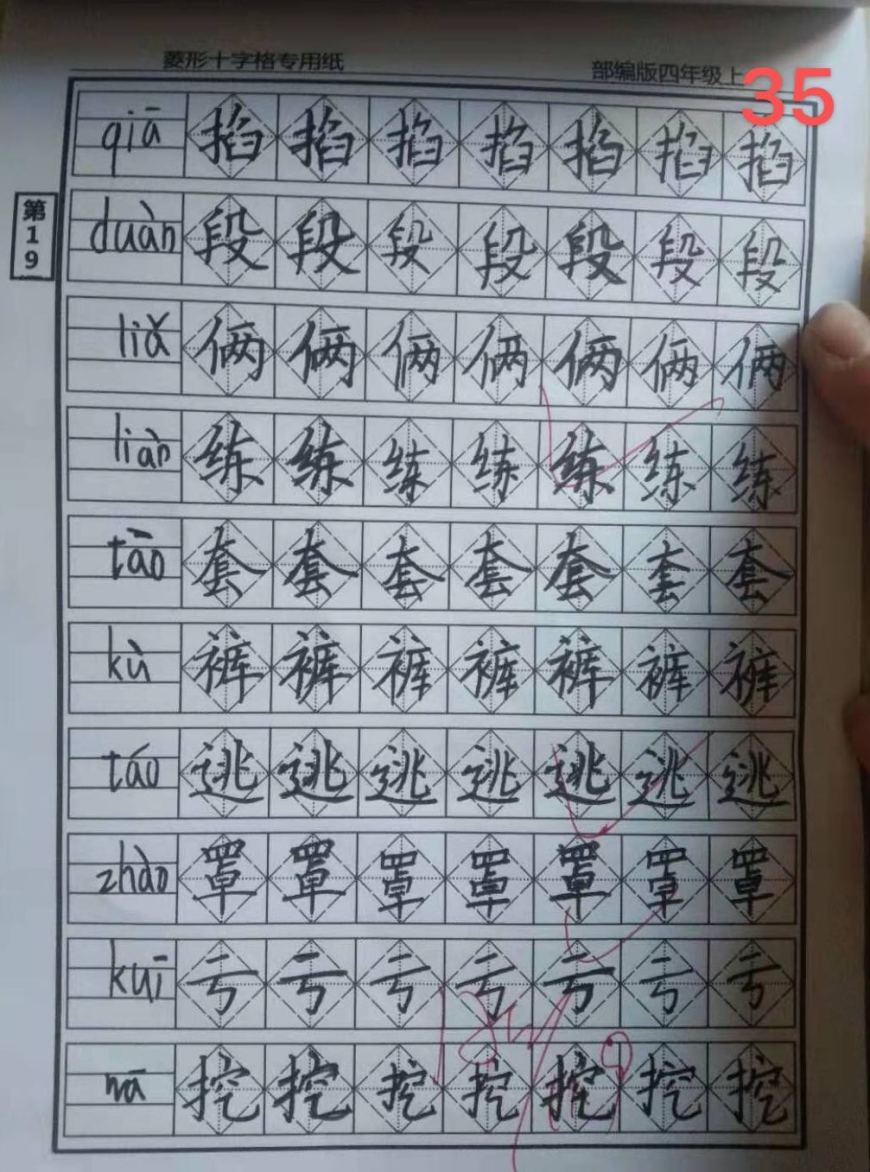 菱形十字格专用纸 部编版四年级上
35
第19
qiā 掐掐掐掐掐掐掐
duàn 段段段段段段段
liǎ 俩俩俩俩俩俩俩
liàn 练练练练练练练
tào 套套套套套套套
kù 裤裤裤裤裤裤裤
táo 逃逃逃逃逃逃逃
zhào 罩罩罩罩罩罩罩
kuī 亏亏亏亏亏亏亏
挖挖挖挖挖挖挖